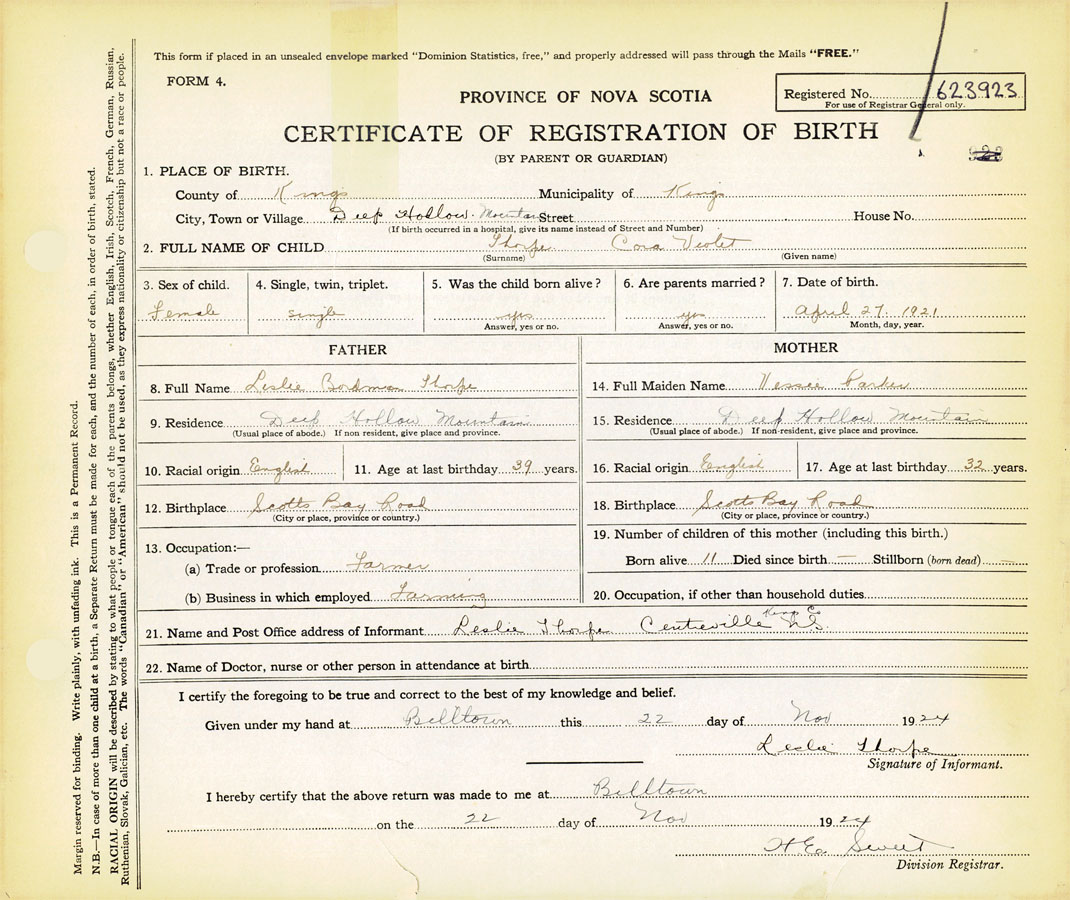 This form if placed in an unsealed envelope marked "Dominion Statistics, free," and properly addressed will pass through the Mails "FREE."
FORM 4.
Registered No. 623923
For use of Registrar General only.
PROVINCE OF NOVA SCOTIA
CERTIFICATE OF REGISTRATION OF BIRTH
(BY PARENT OR GUARDIAN)
1. PLACE OF BIRTH.
County of Kings Municipality of Kings
City, Town or Village Deep Hollow Mountain Street House No.
(If birth occurred in a hospital, give its name instead of Street and Number)
2. FULL NAME OF CHILD Thorpe Cora Violet
(Surname) (Given name)
3. Sex of child. 4. Single, twin, triplet. 5. Was the child born alive? 6. Are parents married? 7. Date of birth.
Female single yes yes April 27. 1921
Answer, yes or no. Answer, yes or no. Month, day, year.
FATHER
8. Full Name Leslie Bordman Thorpe
9. Residence Deep Hollow Mountain
(Usual place of abode.) If non resident, give place and province.
10. Racial origin English 11. Age at last birthday 39 years.
12. Birthplace Scotts Bay Road
(City or place, province or country.)
13. Occupation:—
(a) Trade or profession Farmer
(b) Business in which employed Farming
MOTHER
14. Full Maiden Name Vessie Parker
15. Residence Deep Hollow Mountain
(Usual place of abode.) If non-resident, give place and province.
16. Racial origin English 17. Age at last birthday 32 years.
18. Birthplace Scotts Bay Road
(City or place, province or country.)
19. Number of children of this mother (including this birth.)
Born alive 11 Died since birth — Stillborn (born dead) —
20. Occupation, if other than household duties
21. Name and Post Office address of Informant Leslie Thorpe Centreville Kings Co N.S.
22. Name of Doctor, nurse or other person in attendance at birth
I certify the foregoing to be true and correct to the best of my knowledge and belief.
Given under my hand at Billtown this 22 day of Nov 1924
Leslie Thorpe
Signature of Informant.
I hereby certify that the above return was made to me at Billtown
on the 22 day of Nov 1924
Sweet
Division Registrar.
Margin reserved for binding. Write plainly, with unfading ink. This is a Permanent Record.
N.B.—In case of more than one child at a birth, a Separate Return must be made for each, and the number of each, in order of birth, stated.
RACIAL ORIGIN will be described by stating to what people or tongue each of the parents belongs, whether English, Irish, Scotch, French, German, Russian,
Ruthenian, Slovak, Galician, etc. The words "Canadian" or "American" should not be used, as they express nationality or citizenship but not a race or people.